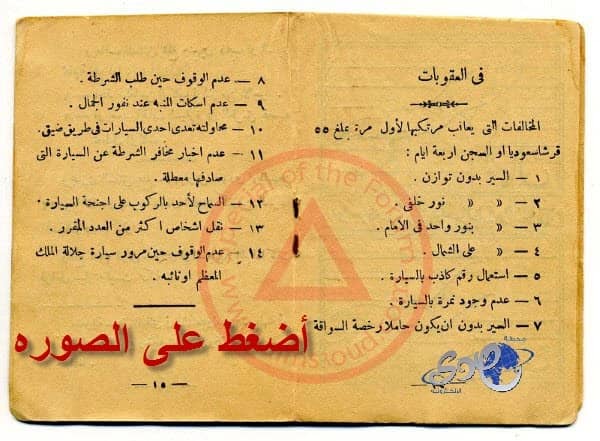 فى العقوبات
المخالفات التى يعاقب مرتكبها لأول مرة بمبلغ ٥٥
قرشا سعوديا او السجن اربعة ايام :
١ — السير بدون توازن .
٢ — « » نور خلفى .
٣ — « بنور واحد فى الامام .
٤ — « على الشمال .
٥ — استعمال رقم كاذب بالسيارة .
٦ — عدم وجود نمرة بالسيارة .
٧ — السير بدون ان يكون حاملا رخصة السواقة
محطة
صدى
الإلكترونية
٨ — عدم الوقوف حين طلب الشرطة .
٩ — عدم اسكات المنبه عند نفور الجمال .
١٠ — محاولته تعدى احدى السيارات فى طريق ضيق .
١١ — عدم اخبار مخافر الشرطة عن السيارة التى
صادفها معطلة .
١٢ — السماح لأحد بالركوب على اجنحة السيارة .
١٣ — نقل اشخاص اكثر من العدد المقرر .
١٤ — عدم الوقوف حين مرور سيارة جلالة الملك
المعظم او نائبه .
أضغط على الصوره
— ١٥ —
special of the Forum
www.